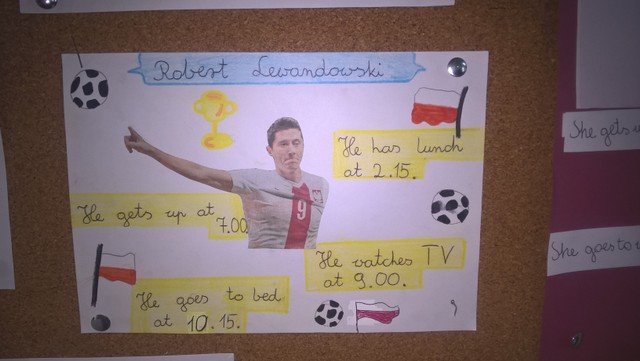 Robert Lewandowski
He has lunch
at 2.15.
He gets up at
7.00
9
He watches TV
at 9.00.
He goes to bed
at 10.15.
She gets u
She goes to